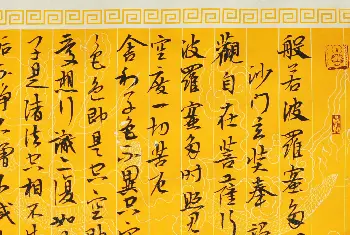 般若波羅蜜多
沙门玄奘奉詔
觀自在菩薩行
波羅蜜多时照見
空度一切苦厄
舍利子色不異空
色色即是空空即
受想行識亦復如
子是诸法空相不生
垢不净不增不减